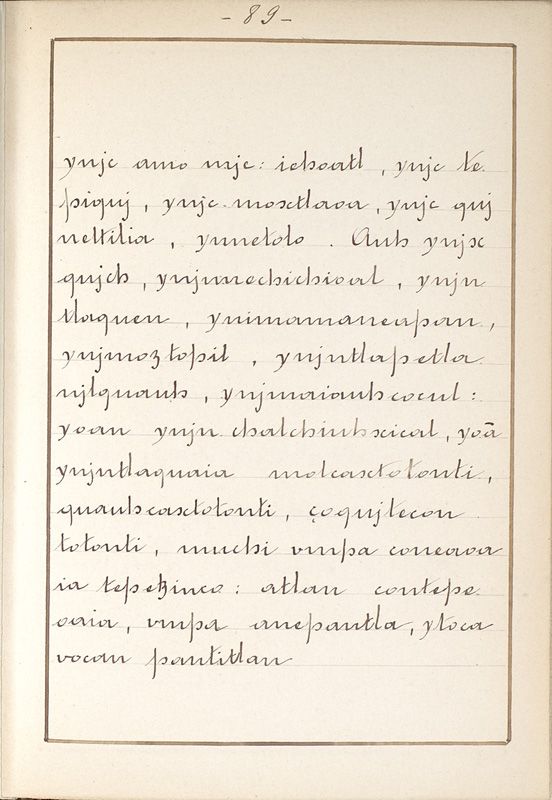 - 89 -
ynjc amo mjc: ichoatl, ynjc te
piquj, ynjc. moxtlaoa, ynjc quj
neltilia, ynnetolo. Auh ynjxc
qujch, ynjnnechichioal, ynjn
tlaquen, ynimamaneapan,
ynjmoztopil, ynjntlapetla
njlquauh, ynjmaiauhcocul:
yoan ynjn chalchiuhxical, yoã
ynjntlaquaia molcaxtotonti,
quauhcaxtotonti, çoqujtecon
totonti, muchi vmpa coneaoa
ia tepetzinco: atlan contepe
oaia, vmpa anepantla, ytoca
vocan pantitlan